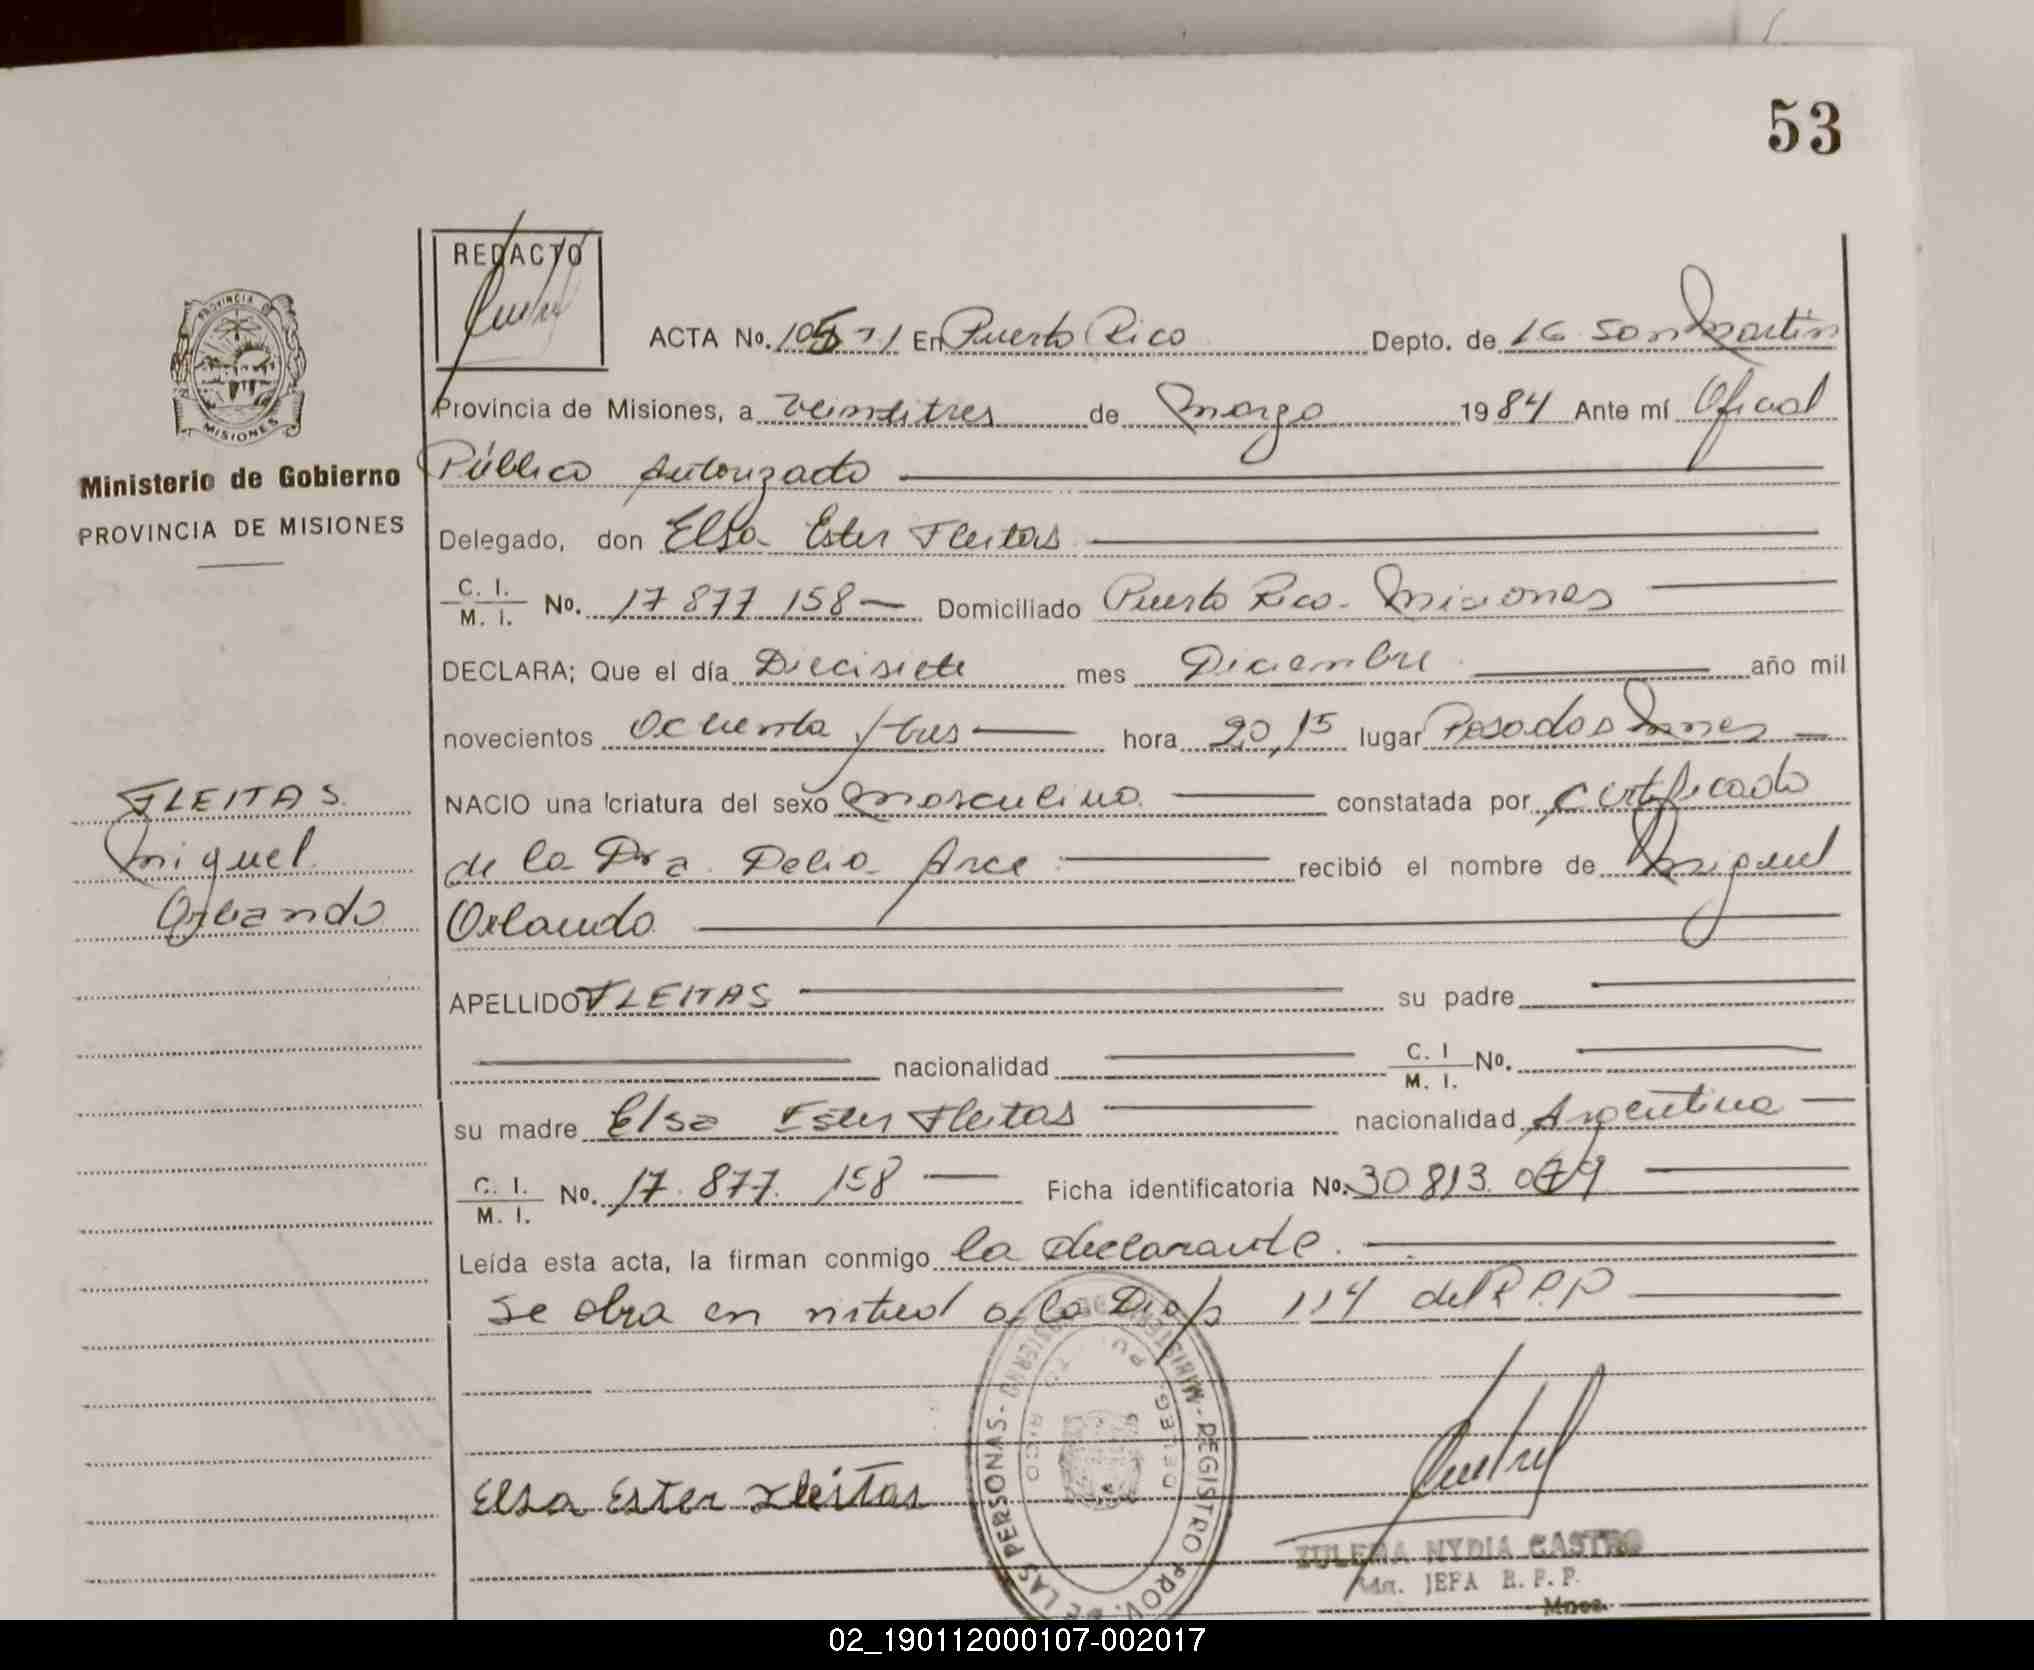 53
REDACTO
ACTA No. En Puerto Rico Depto. de LG San Martin
Provincia de Misiones, a veintitres de marzo 1984 Ante mí Oficial
Público Autorizado
Delegado, don Elsa Ester Fleitas
C. I.
M. I. No. 17 877 158 Domiciliado Puerto Rico - Misiones
DECLARA; Que el día Diecisiete mes Diciembre año mil
novecientos Ochenta y tres hora 20,15 lugar Posadas Mnes
NACIO una criatura del sexo masculino constatada por certificado
de la Dra. Delia Arce recibió el nombre de Miguel
Orlando
APELLIDO FLEITAS su padre
nacionalidad C. I
M. I. No.
su madre Elsa Ester Fleitas nacionalidad Argentina
C. I.
M. I. No. 17. 877. 158 Ficha identificatoria No. 30 813. 079
Leída esta acta, la firman conmigo la declarante.
Se obra en virtud a la Disp 114 del R.P.P
Elsa Ester Fleitas
ZULEMA NYDIA CASTRO
JEFA R. P. P.
Mnes.
PROVINCIA DE
MISIONES
Ministerio de Gobierno
PROVINCIA DE MISIONES
FLEITAS
Miguel
Orlando
REGISTRO PROV. DE LAS PERSONAS - MINISTERIO DE GOBIERNO -
DELEG. PUERTO RICO
02_190112000107-002017